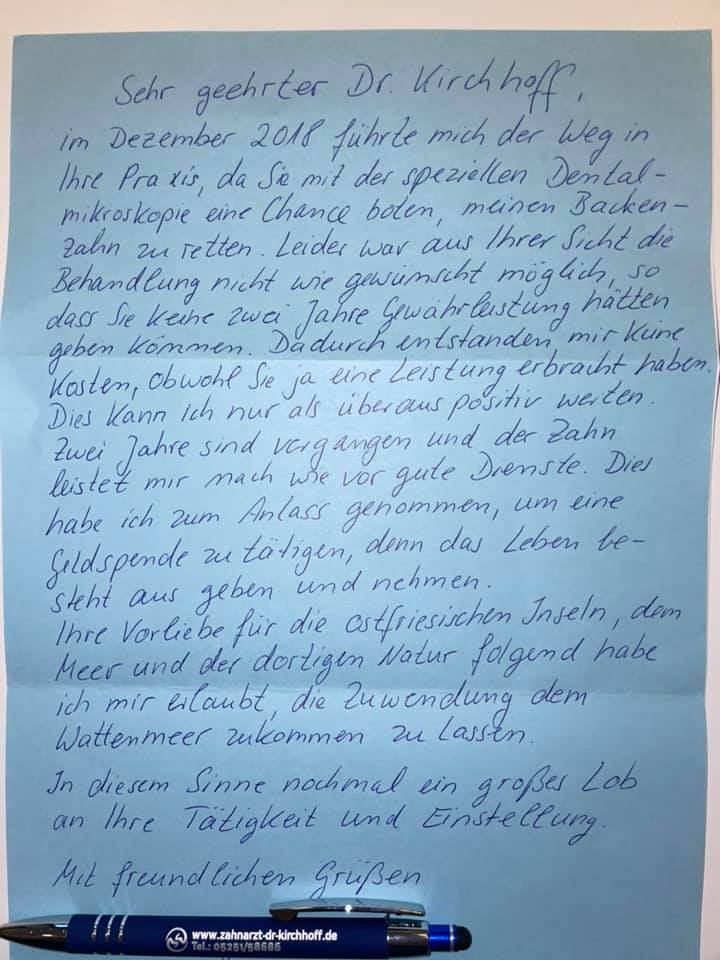 Sehr geehrter Dr. Kirchhoff,
im Dezember 2018 führte mich der Weg in
Ihre Praxis, da Sie mit der speziellen Dental-
mikroskopie eine Chance boten, meinen Backen-
zahn zu retten. Leider war aus Ihrer Sicht die
Behandlung nicht wie gewünscht möglich, so
dass Sie keine zwei Jahre Gewährleistung hätten
geben können. Dadurch entstanden mir keine
Kosten, obwohl Sie ja eine Leistung erbracht haben.
Dies kann ich nur als überaus positiv werten.
Zwei Jahre sind vergangen und der Zahn
leistet mir nach wie vor gute Dienste. Dies
habe ich zum Anlass genommen, um eine
Geldspende zu tätigen, denn das Leben be-
steht aus geben und nehmen.
Ihre Vorliebe für die ostfriesischen Inseln, dem
Meer und der dortigen Natur folgend habe
ich mir erlaubt, die Zuwendung dem
Wattenmeer zukommen zu lassen.
In diesem Sinne nochmal ein großes Lob
an Ihre Tätigkeit und Einstellung.
Mit freundlichen Grüßen
www.zahnarzt-dr-kirchhoff.de
Tel.: 05251/58686